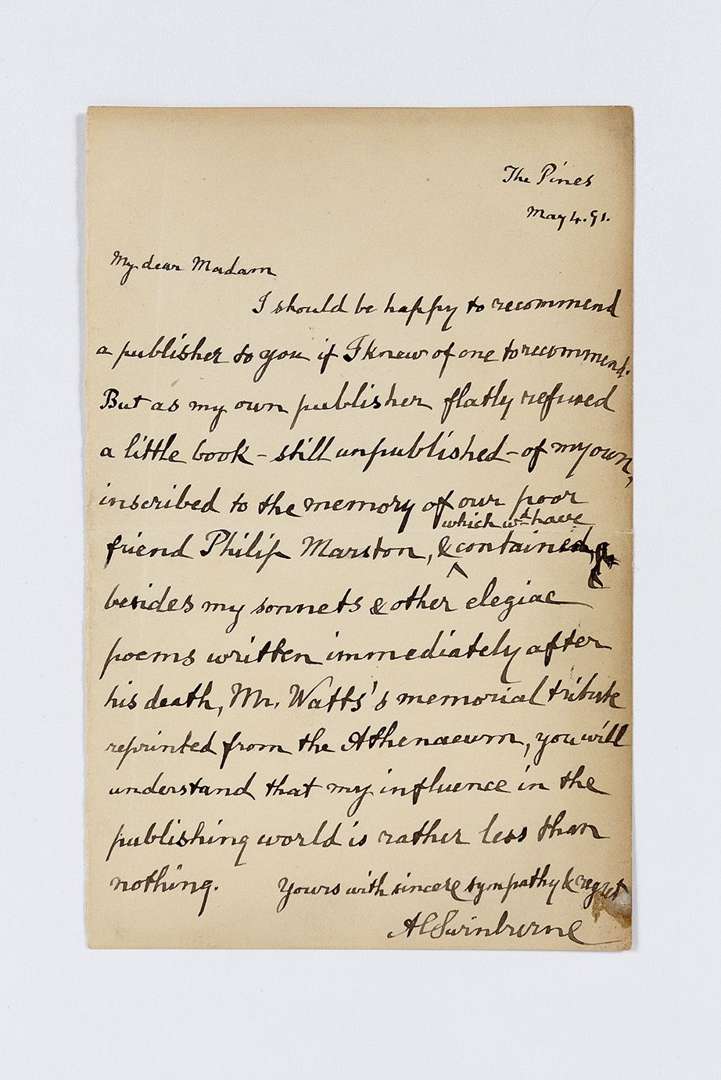 The Pines
May 4. 91.
My dear Madam
I should be happy to recommend
a publisher to you if I knew of one to recommend.
But as my own publisher flatly refused
a little book – still unpublished – of my own,
inscribed to the memory of our poor
which wd have
friend Philip Marston, & contained,
besides my sonnets & other elegiac
poems written immediately after
his death, Mr. Watts's memorial tribute
reprinted from the Athenaeum, you will
understand that my influence in the
publishing world is rather less than
nothing. Yours with sincere sympathy & regret
ACSwinburne